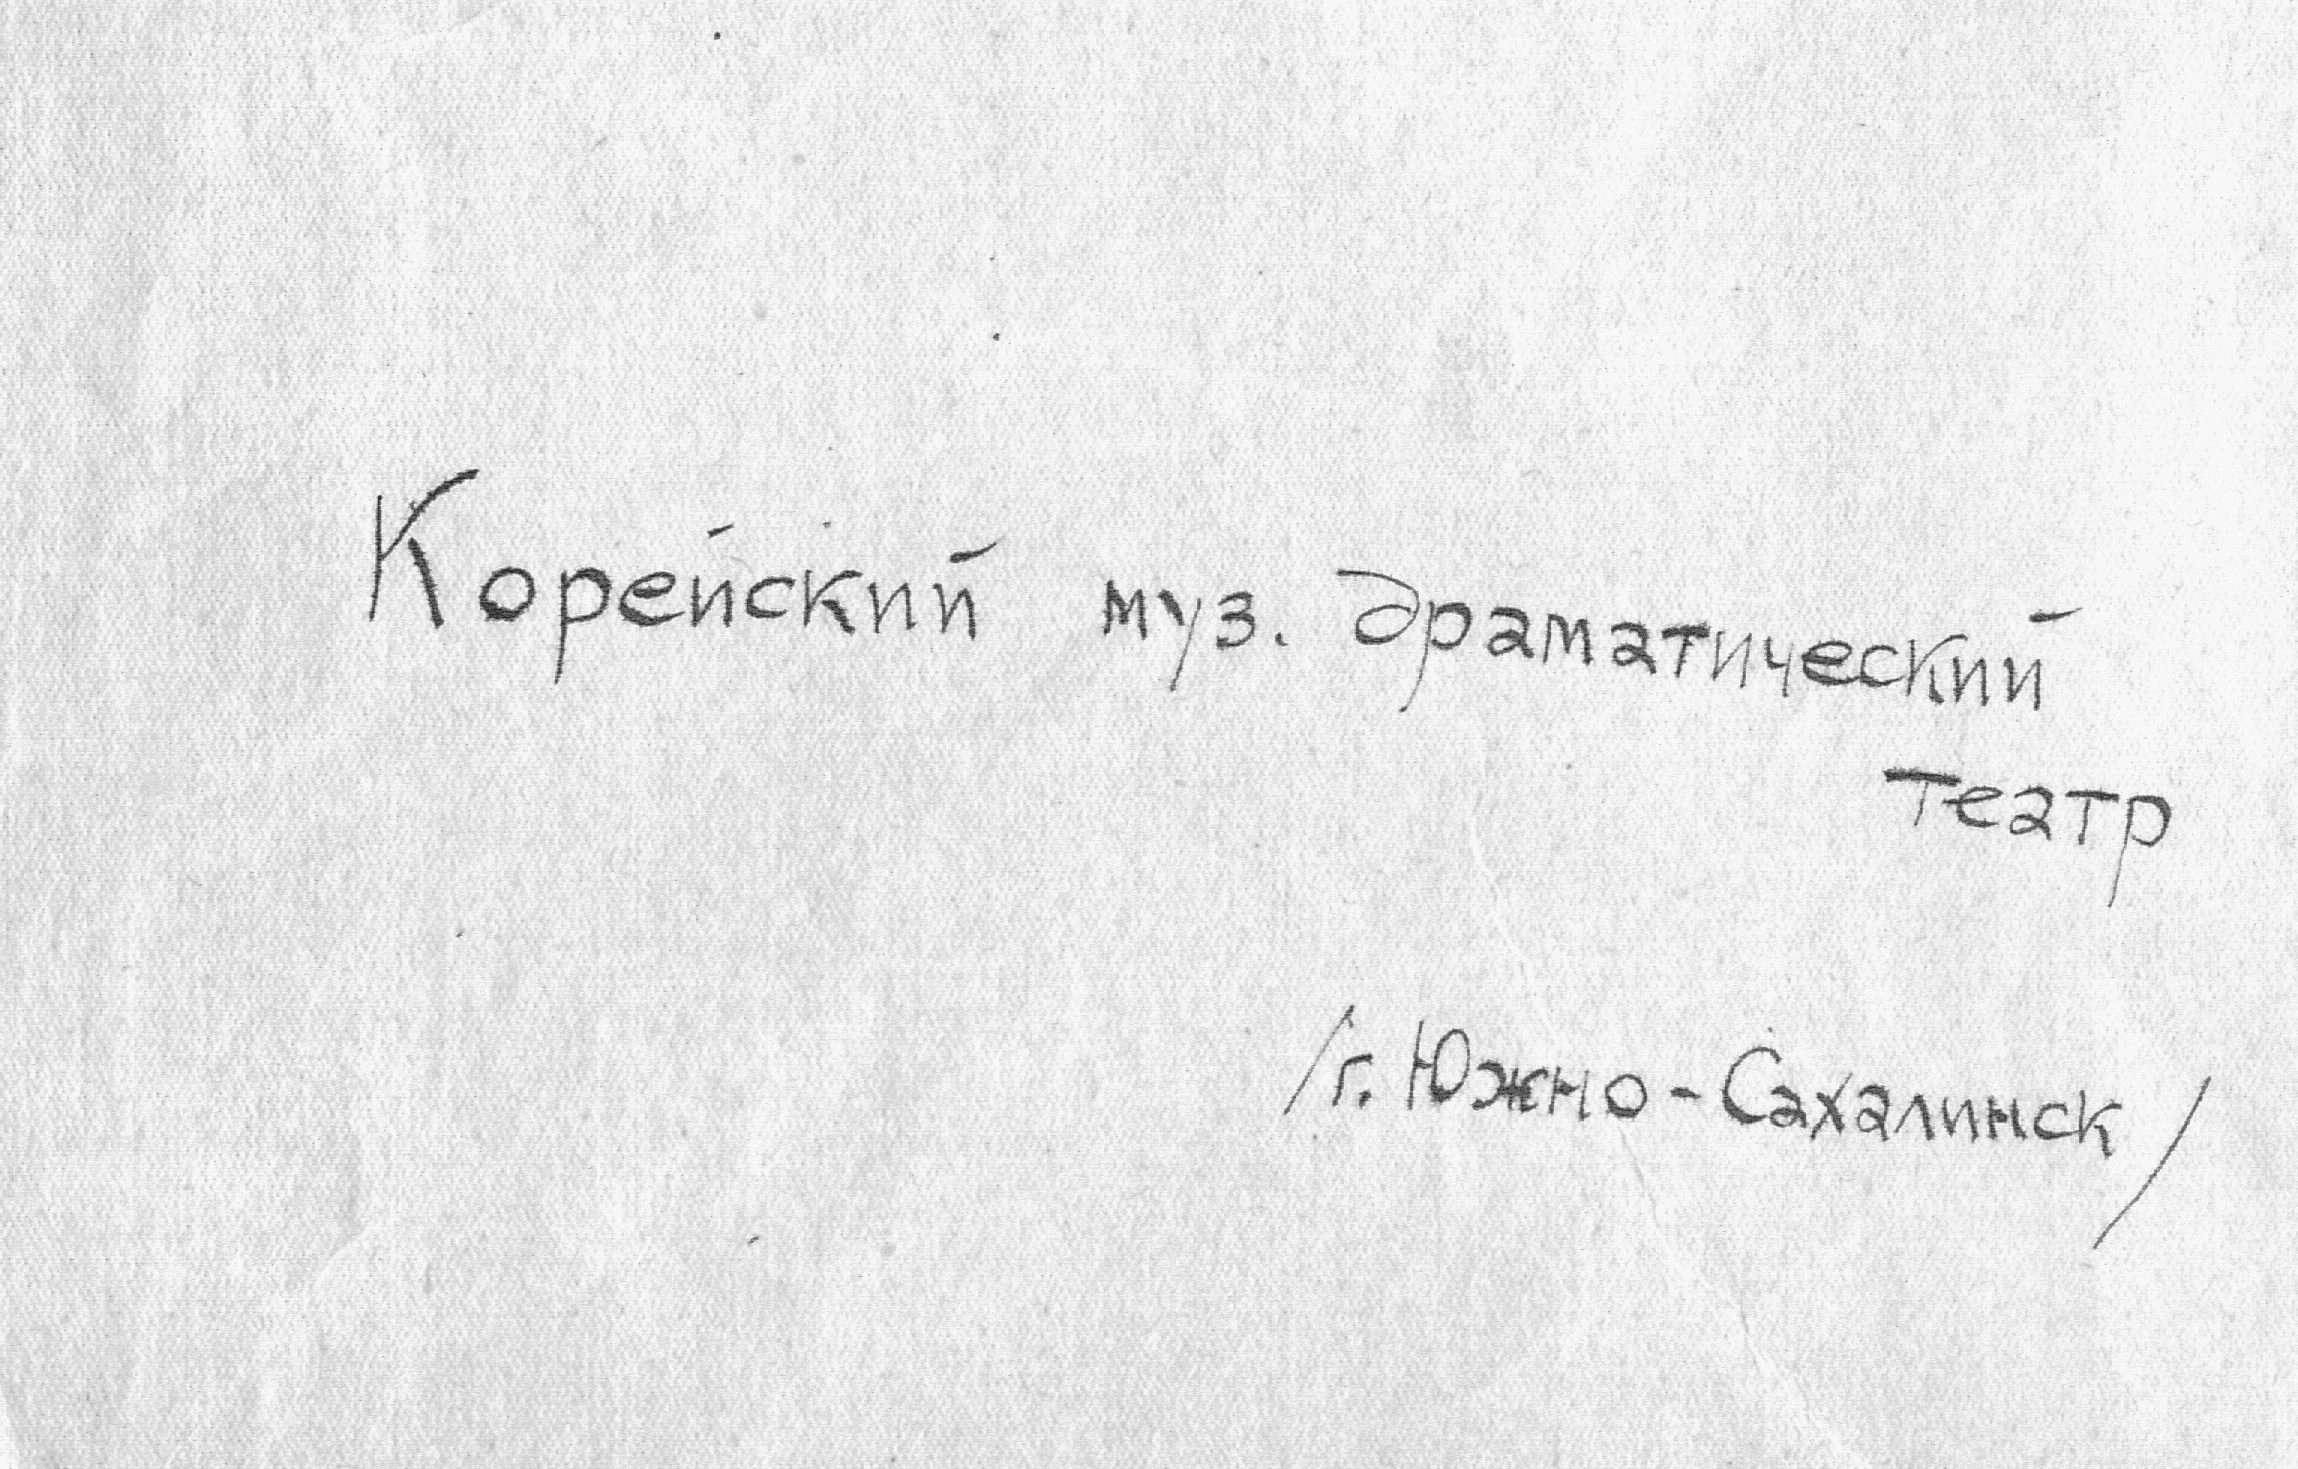 Корейский муз. драматический
театр
/г. Южно-Сахалинск/